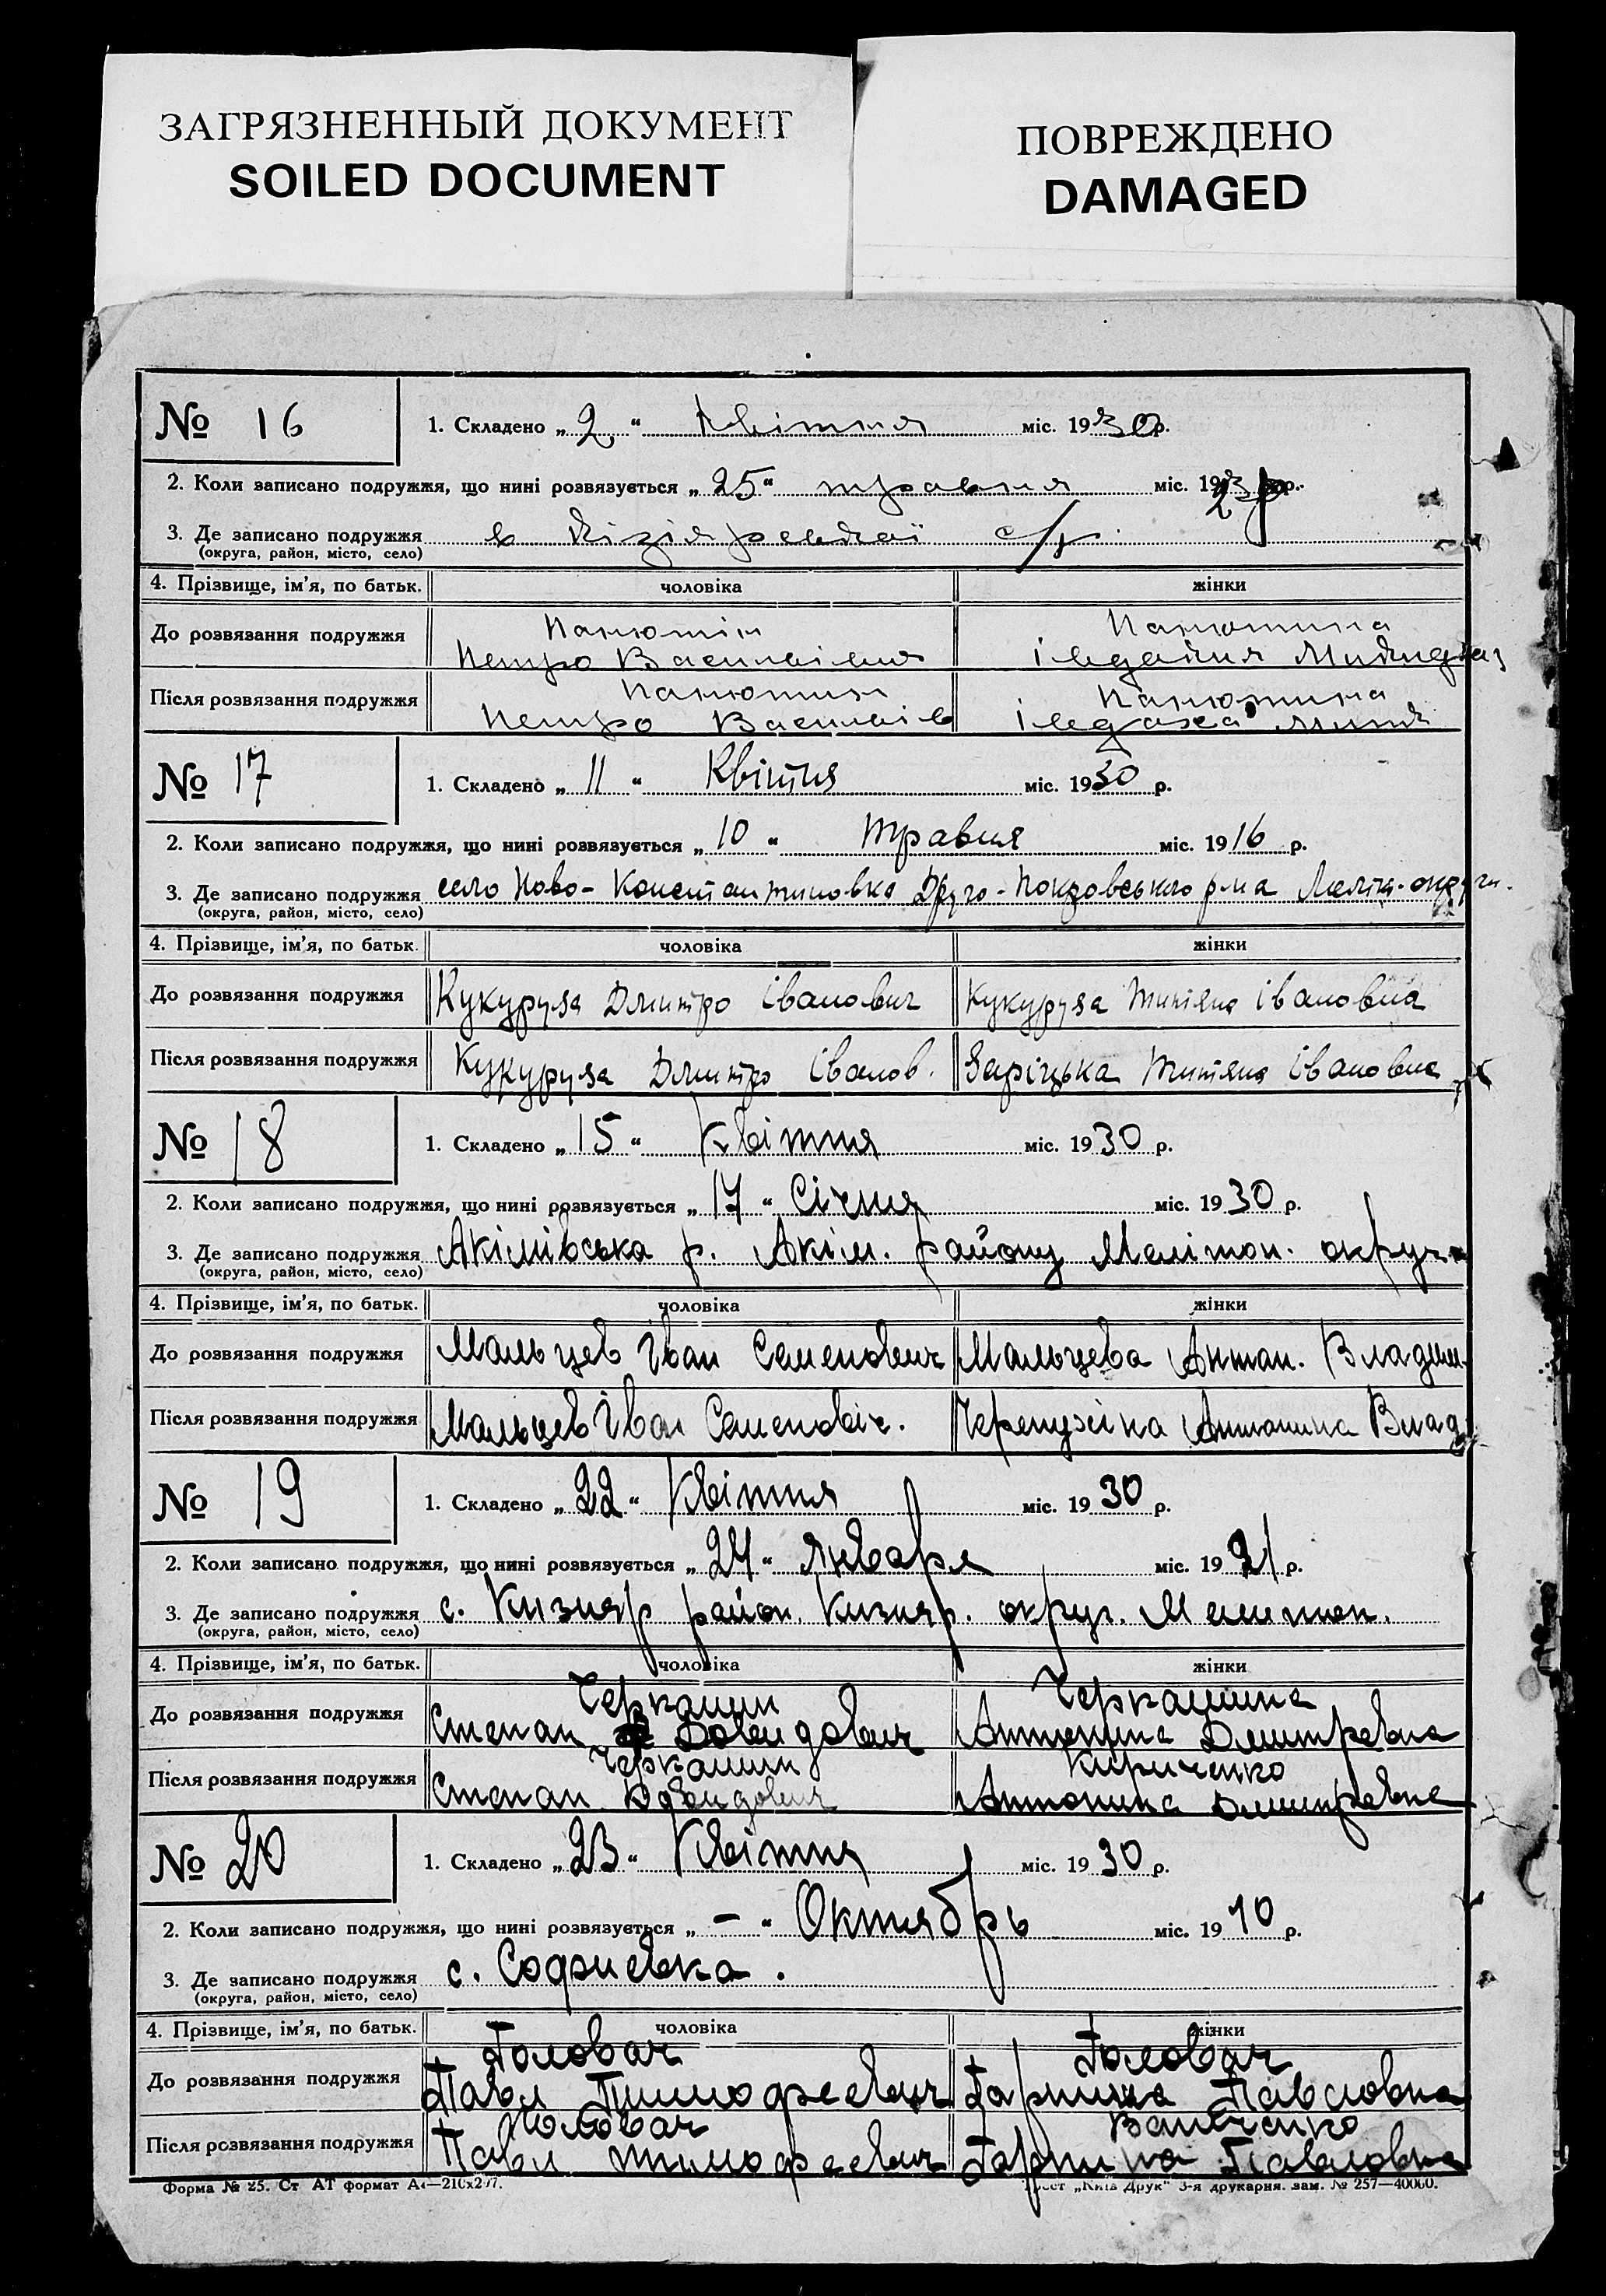 ЗАГРЯЗНЕННЫЙ ДОКУМЕНТ
SOILED DOCUMENT
ПОВРЕЖДЕНО
DAMAGED
№ 16
1. Складено „2“ Квітня міс. 1930 р.
2. Коли записано подружжя, що нині розвязується „25“ травня міс. 19 р.
3. Де записано подружжя в Кізіярській с/р.
(округа, район, місто, село)
4. Прізвище, ім'я, по батьк. чоловіка жінки
До розвязання подружжя Панютін Панютина
Петро Васильевич
Після розвязання подружжя Панютин Панютина
Петро Василів
№ 17
1. Складено „11“ Квітня міс. 1930 р.
2. Коли записано подружжя, що нині розвязується „10“ травня міс. 1916 р.
3. Де записано подружжя село Ново-Константиновка Друго-Покровського р-на Меліт. округи.
(округа, район, місто, село)
4. Прізвище, ім'я, по батьк. чоловіка жінки
До розвязання подружжя Кукуруза Дмитро Іванович Кукуруза Титяна Івановна
Після розвязання подружжя Кукуруза Дмитро Іванов. Заріцька Титяна Івановна
№ 18
1. Складено „15“ Квітня міс. 1930 р.
2. Коли записано подружжя, що нині розвязується „17“ Січня міс. 1930 р.
3. Де записано подружжя Акімівська р. Акім. району Мелітоп. округи
(округа, район, місто, село)
4. Прізвище, ім'я, по батьк. чоловіка жінки
До розвязання подружжя Мальцев Іван Семенович Мальцева Антан. Владим.
Після розвязання подружжя Мальцев Іван Семенові ч. Антонина Влад
№ 19
1. Складено „22“ Квітня міс. 1930 р.
2. Коли записано подружжя, що нині розвязується „24“ Января міс. 1921 р.
3. Де записано подружжя с. Кизияр район. Кизияр. округ. Мелитоп.
(округа, район, місто, село)
4. Прізвище, ім'я, по батьк. чоловіка жінки
До розвязання подружжя Черкашин Черкашина
Степан Довидович Антонина Дмитревна
Після розвязання подружжя Черкашин Кириченко
Степан Довидович Антонина Дмитревна
№ 20
1. Складено „23“ Квітня міс. 1930 р.
2. Коли записано подружжя, що нині розвязується „—“ Октябрь міс. 1910 р.
3. Де записано подружжя с. Софиевка.
(округа, район, місто, село)
4. Прізвище, ім'я, по батьк. чоловіка жінки
До розвязання подружжя Головач Головач
Павел Тимофеевич Гарпина Павловна
Після розвязання подружжя Головач Ванченко
Павел Тимофеевич Гарпина Павловна
Форма № 25. Ст АТ формат А4—210х297. Трест „Київ Друк“ 3-я друкарня. зам. № 257—40000.